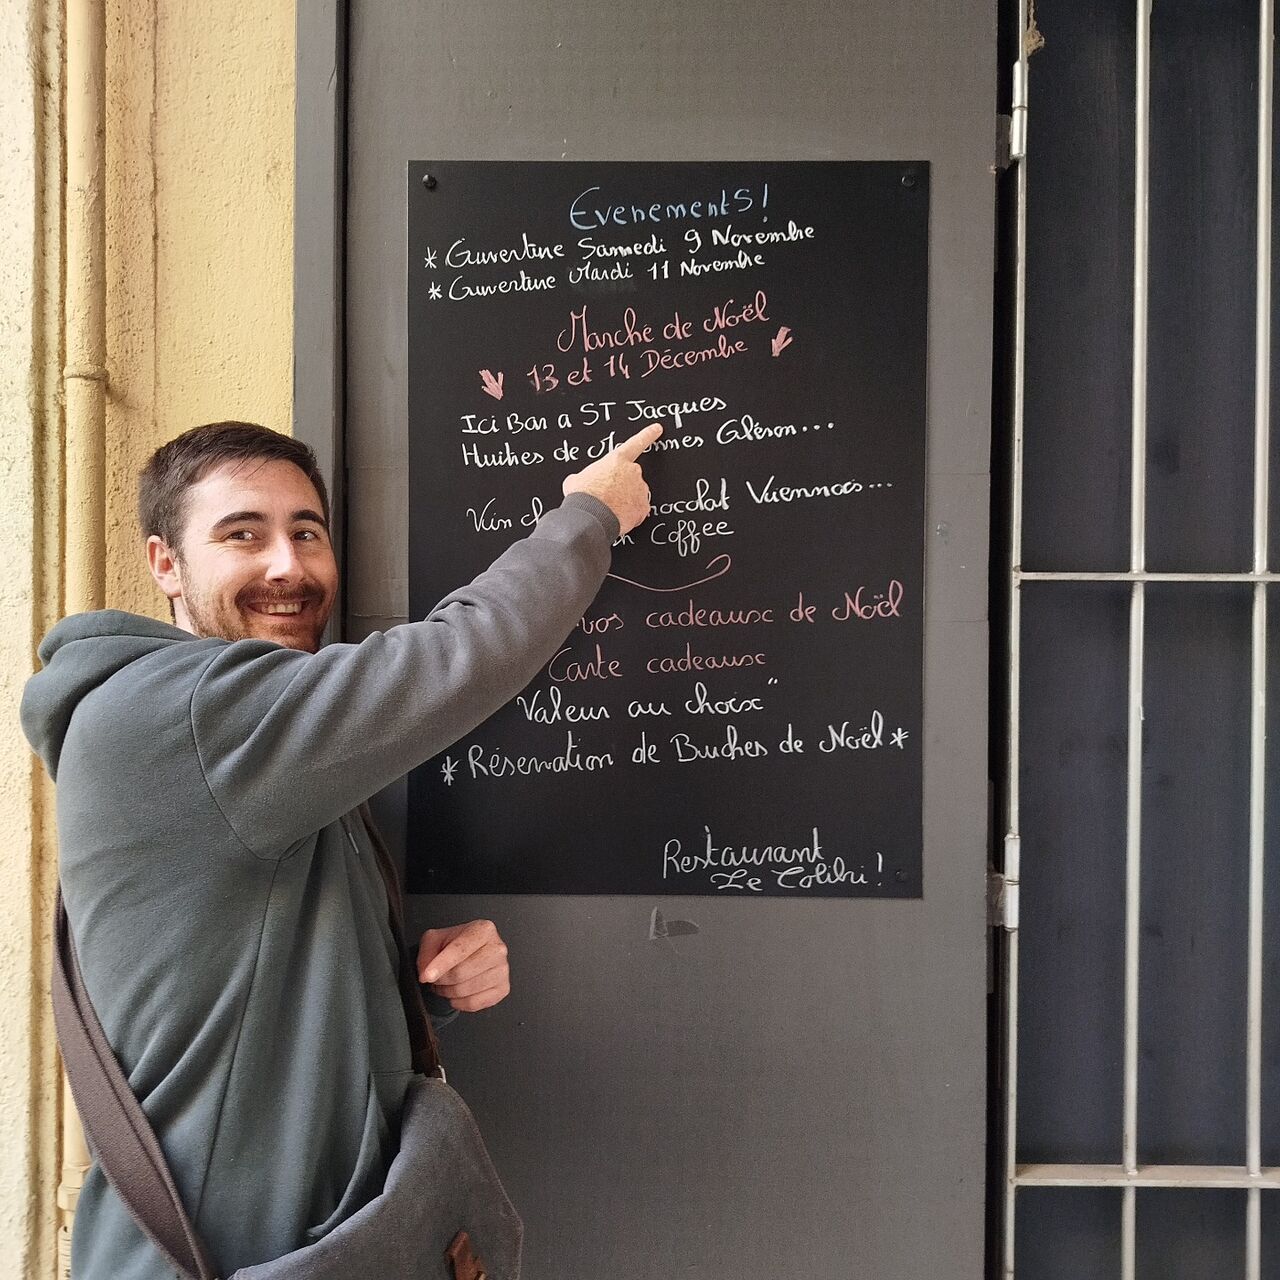 EvenementS!
* Ouverture Samedi 9 Novembre
* Ouverture Mardi 11 Novembre
Marché de Noël
13 et 14 Décembre
Ici Bar a ST Jacques
Huitres de
Vin Vuennois...
Coffee
vos cadeaux de Noël
Carte cadeaux
Valeur au choix"
* Réservation de Buches de Noël *
Restaurant
Le Colibri!